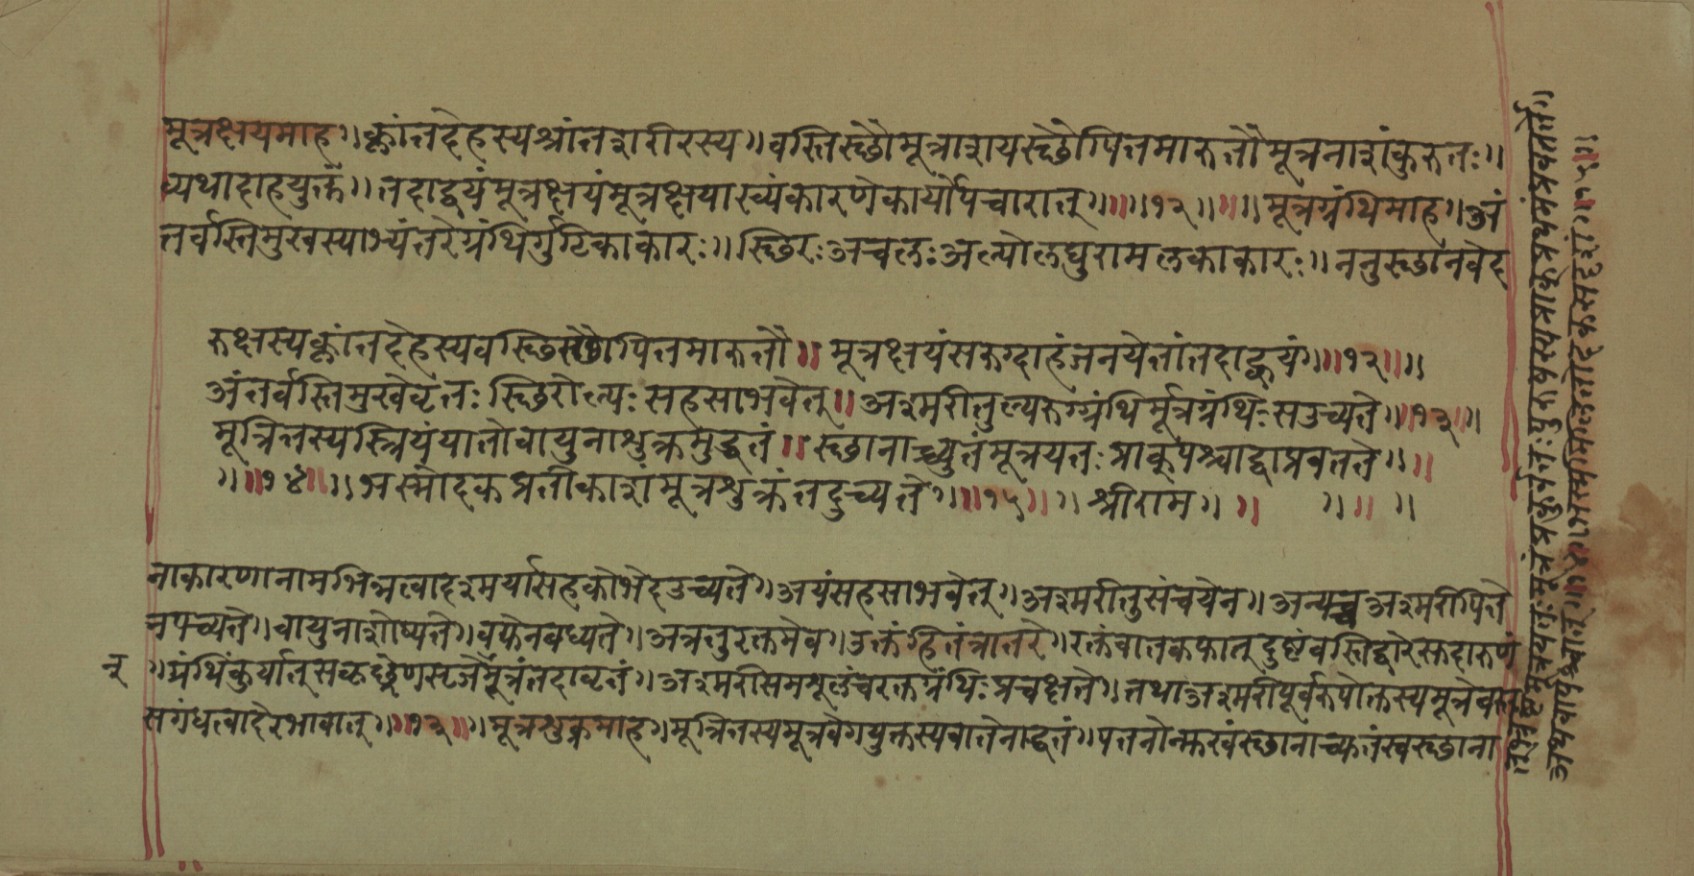 मूत्रक्षयमाह॥क्लांतदेहस्यश्रांतशरीरस्य॥वस्तिस्छौमूत्राशयस्छौपित्तमारुतौमूत्रनाशंकुरुतः॥
व्यथादाहयुक्तं॥तदाह्वयंमूत्रक्षयंमूत्रक्षयाख्यंकारणेकार्योपचारात्॥॥॥१२॥॥॥मूत्रग्रंथिमाह॥अं
तर्वस्तिमुखस्याभ्यंतरेग्रंथिर्गुटिकाकारः॥स्छिरःअचलःअल्पोलघुरामलकाकारः॥ननुस्छानवेद
रुक्षस्यक्लांतदेहस्यवस्छिस्छौपित्तमारुतौ॥मूत्रक्षयंसरुग्दाहंजनयेतांतदाह्वयं॥॥१२॥॥
अंतर्वस्तिमुखेवृत्तः स्छिरोल्पः सहसाभवेत्॥अश्मरीतुल्यरुग्ग्रंथिर्मूत्रग्रंथिः सउच्यते॥॥१३॥॥
मूत्रितस्यस्त्रियंयातोवायुनाशुक्रमुद्धतं॥स्छानाच्च्युतंमूत्रयतः प्राक्पश्चाद्वाप्रवर्तते॥॥
॥॥१४॥॥भस्मोदकप्रतीकाशंमूत्रशुक्रंतदुच्यते॥॥१५॥॥श्रीराम॥॥ ॥॥ ॥
नाकारणानामभिन्नत्वादश्मर्यासहकोभेदउच्यते॥अयंसहसाभवेत्॥अश्मरीतुसंचयेन॥अन्यच्चअश्मरीपित्ते
नपच्यते॥वायुनाशोष्यते॥कफेनबध्यते॥अत्रतुरक्तमेव॥उक्तंहितंत्रांतरे॥रक्तंवातकफात्दुष्टंवस्तिद्वारेसदारुणं
॥ग्रंथिंकुर्यात्सकृछ्रेणसृजेन्मूत्रंतदावृतं॥अश्मरीसमशूलंचरक्तग्रंथिःप्रचक्षते॥तथाअश्मरीपूर्वरूपोक्तस्यमूत्रेवस्त
सगंधत्वादेरभावात्॥॥१३॥॥मूत्रशुक्रमाह॥मूत्रितस्यमूत्रवेगयुक्तस्यवातेनोद्धतं॥पतनोन्मुखंस्छानाच्च्युतंस्वस्छाना